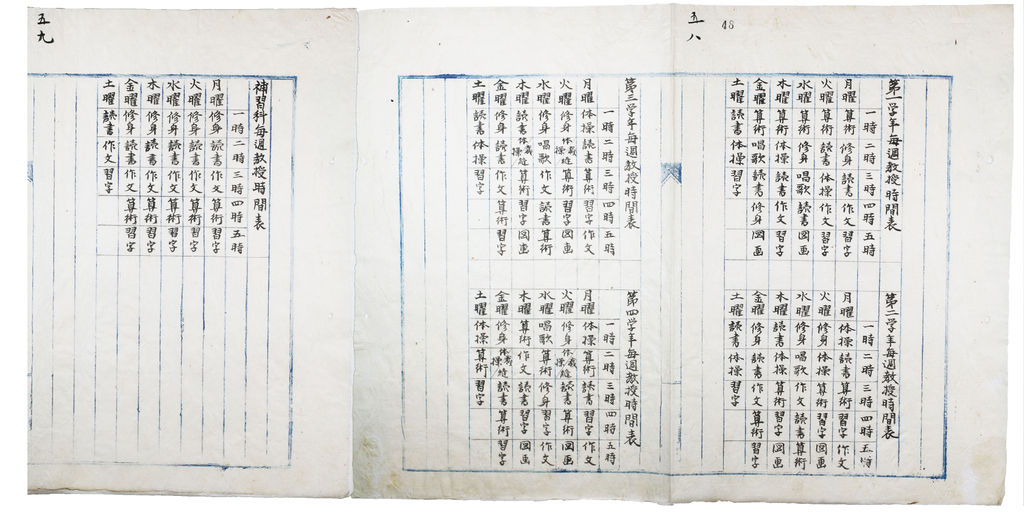 五八
48
第一学年毎週教授時間表
一時 二時 三時 四時 五時
月曜 算術 修身 読書 作文 習字
火曜 算術 読書 体操 作文 習字
水曜 算術 修身 唱歌 読書 図画
木曜 算術 体操 読書 作文 習字
金曜 算術 唱歌 読書 修身 図画
土曜 読書 体操 習字
第二学年毎週教授時間表
一時 二時 三時 四時 五時
月曜 体操 読書 算術 習字 作文
火曜 修身 体操 算術 習字 図画
水曜 修身 唱歌 作文 読書 算術
木曜 読書 体操 算術 習字 図画
金曜 修身 読書 作文 算術 習字
土曜 読書 体操 習字
第三学年毎週教授時間表
一時 二時 三時 四時 五時
月曜 体操 読書 算術 習字 作文
火曜 修身 裁縫体操 算術 習字 図画
水曜 修身 唱歌 作文 読書 算術
木曜 読書 裁縫体操 算術 習字 図画
金曜 修身 読書 作文 算術 習字
土曜 読書 体操 習字
第四学年毎週教授時間表
一時 二時 三時 四時 五時
月曜 体操 算術 読書 習字 作文
火曜 修身 裁縫体操 読書 算術 図画
水曜 唱歌 算術 修身 習字 作文
木曜 算術 作文 読書 習字 図画
金曜 修身 裁縫体操 読書 算術 習字
土曜 体操 算術 習字
五九
補習科毎週教授時間表
一時 二時 三時 四時 五時
月曜 修身 読書 作文 算術 習字
火曜 修身 読書 作文 算術 習字
水曜 修身 読書 作文 算術 習字
木曜 修身 読書 作文 算術 習字
金曜 修身 読書 作文 算術 習字
土曜 読書 作文 習字